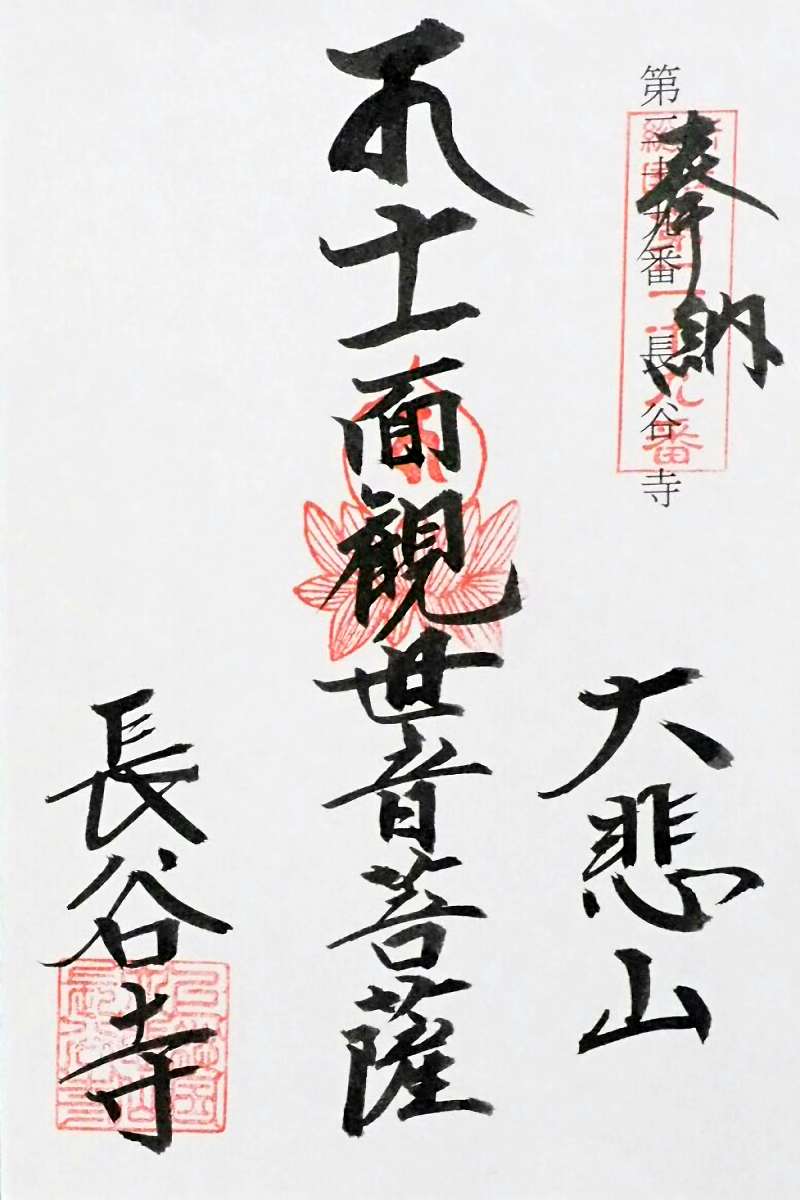 第二十九番 長谷寺
奉納
大悲山
十一面観世音菩薩
長谷寺